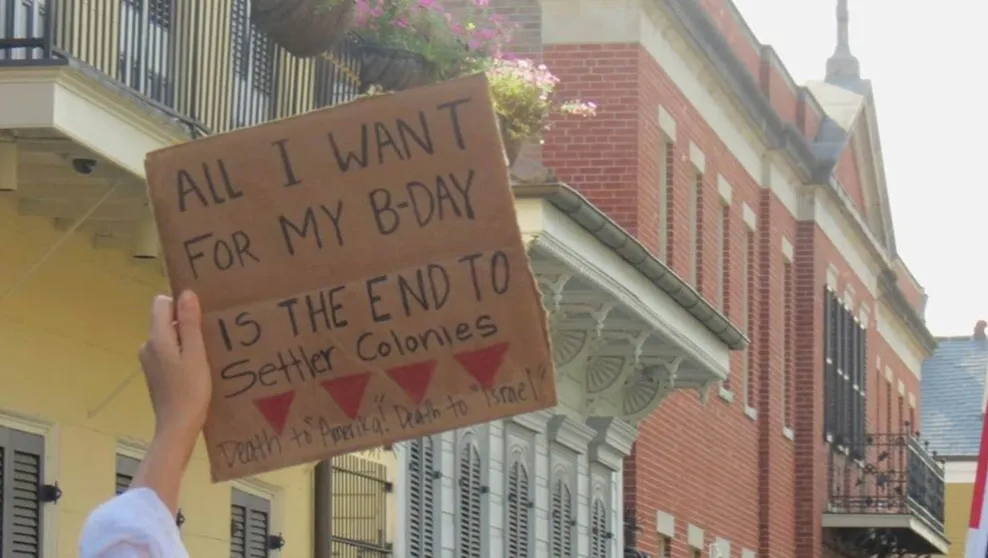 ALL I WANT
FOR MY B-DAY
IS THE END TO
Settler Colonies
Death to "Amerika"! Death to "Israel"